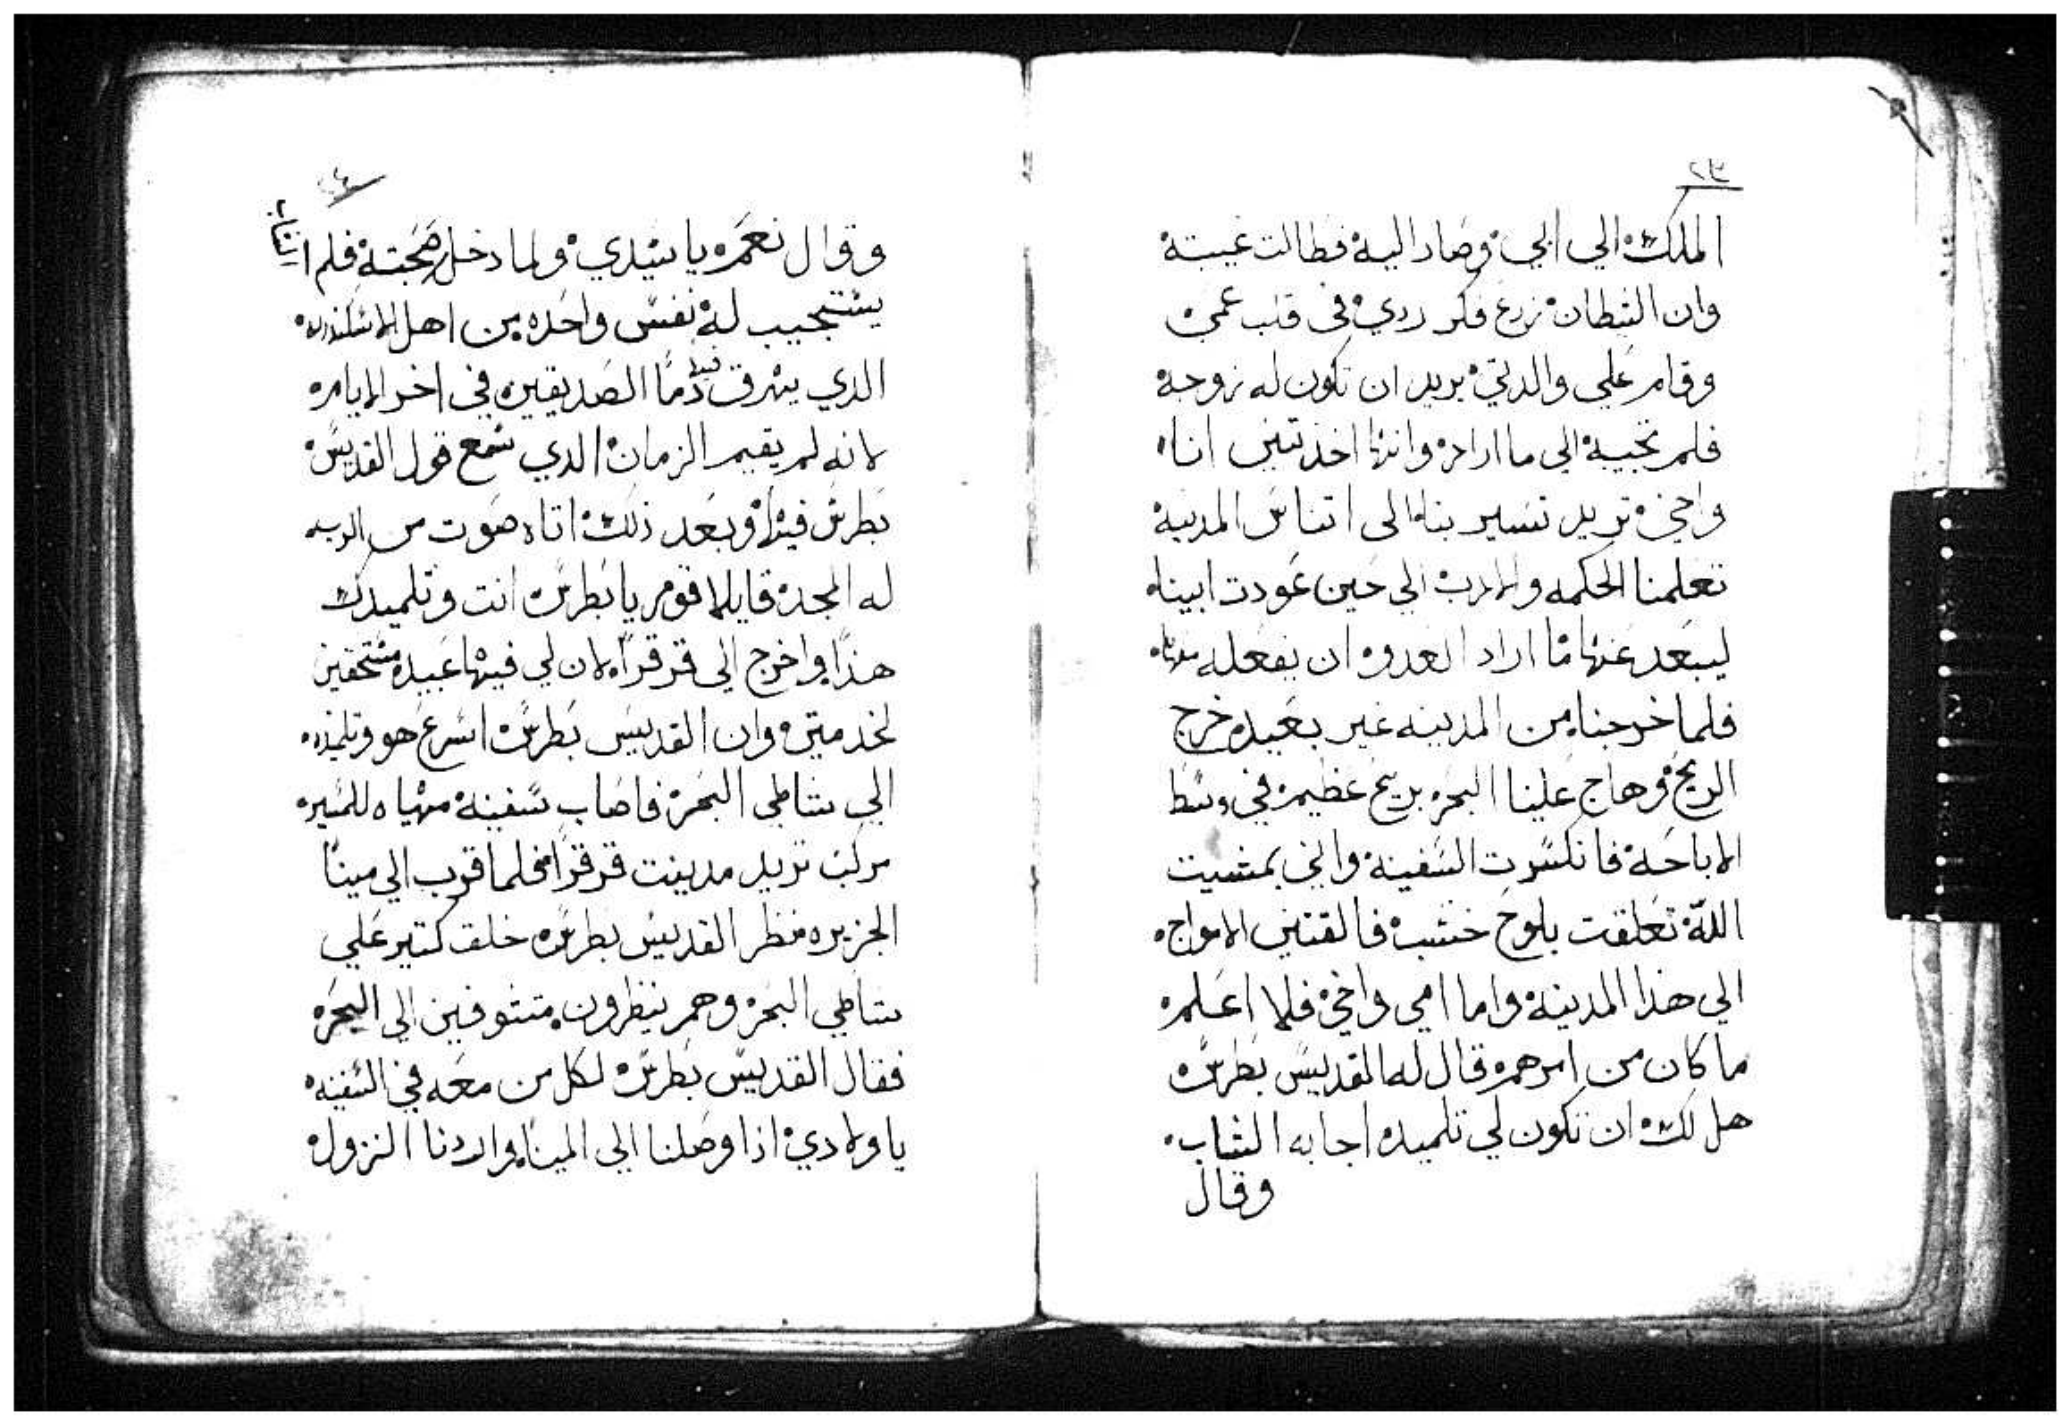 ٢٣
الملك الي ابي وصار اليه فطالت غيبته
وان الشطان زرع فكر ردي في قلب عمي
وقام علي والدتي يريد ان تكون له زوجه
فلم تجيبه الي ما اراد وانها اخذتني انا
واخي تريد تسير بنا الى اتناس المدينه
تعلمنا الحكمه والادب الي حين عودت ابينا
ليبعد عنها ما اراد العدو ان يفعله معها
فلما خرجنا من المدينه غير بعيد خرج
الريح وهاج علينا البحر بريح عظيم في وسط
الاباحه فانكسرت السفينه واني بمشيت
الله تعلقت بلوح خشب فالقتني الامواج
الي هذا المدينه واما امي واخي فلا اعلم
ما كان من امرهم قال له القديس بطرس
هل لك ان تكون لي تلميد اجابه الشاب
وقال
٢٤
وقال نعم يا سيدي ولما دخل صحبته فلم
يستجيب له نفس واحده من اهل الاسكندريه
الدي يهرق فيها دما الصديقين في اخر الايام
لانه لم يقيم الزمان الدي سمع قول القديس
بطرس فيها وبعد ذلك اتاه صوت من الرب
له المجد قايلا قوم يا بطرس انت وتلميدك
هذا واخرج الي قرقرا لان لي فيها عبيد مستحقين
لخدمتي وان القديس بطرس اسرع هو وتلميذه
الي شاطي البحر فاصاب سفينه مهياه للمسير
مركب تريد مدينت قرقرا فلما قرب الي مينا
الجزيره فنظر القديس بطرس خلق كتير علي
شاطي البحر وهم ينظرون متشوفين الي البحر
فقال القديس بطرس لكل من معه في السفينه
يا ولادي اذا وصلنا الي المينا واردنا النزول